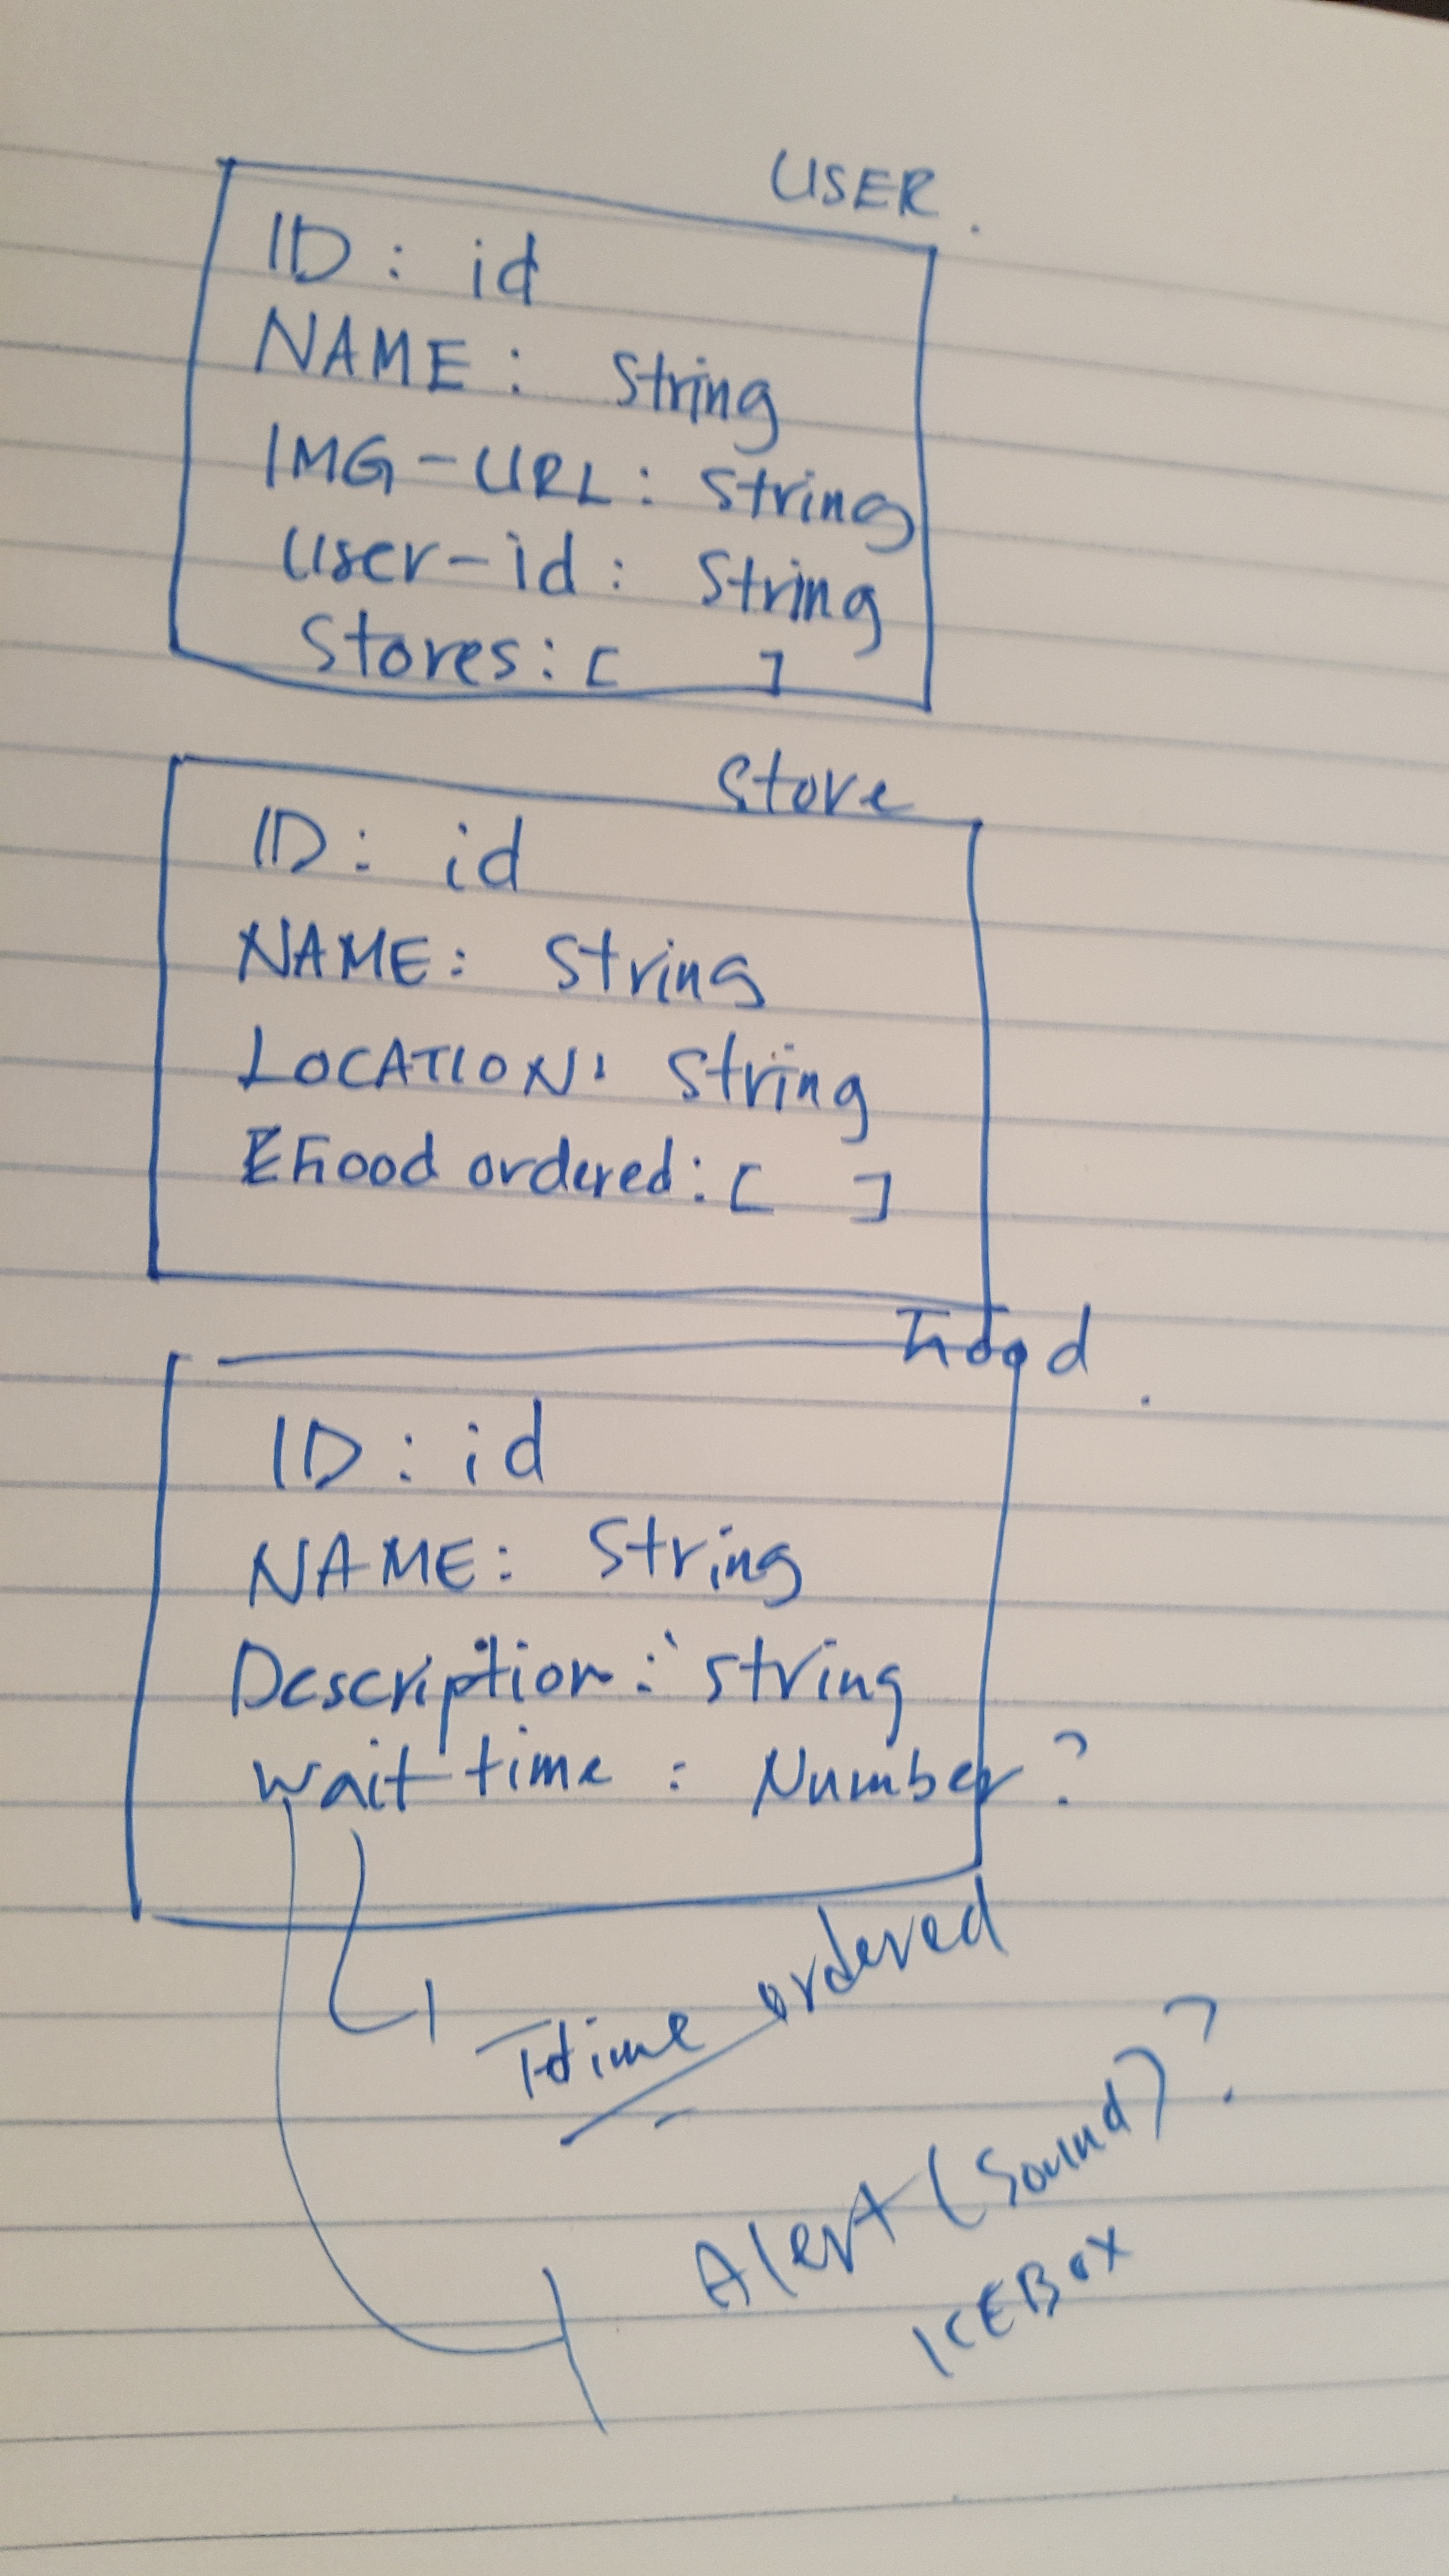 USER.
ID: id
NAME: String
IMG-URL: String
User-id: String
Stores: [ ]
Store
ID: id
NAME: String
LOCATION: String
Food ordered: [ ]
Food.
ID: id
NAME: String
Description: String
wait time: Number?
time ordered
Alert (Sound)?
ICEBOX